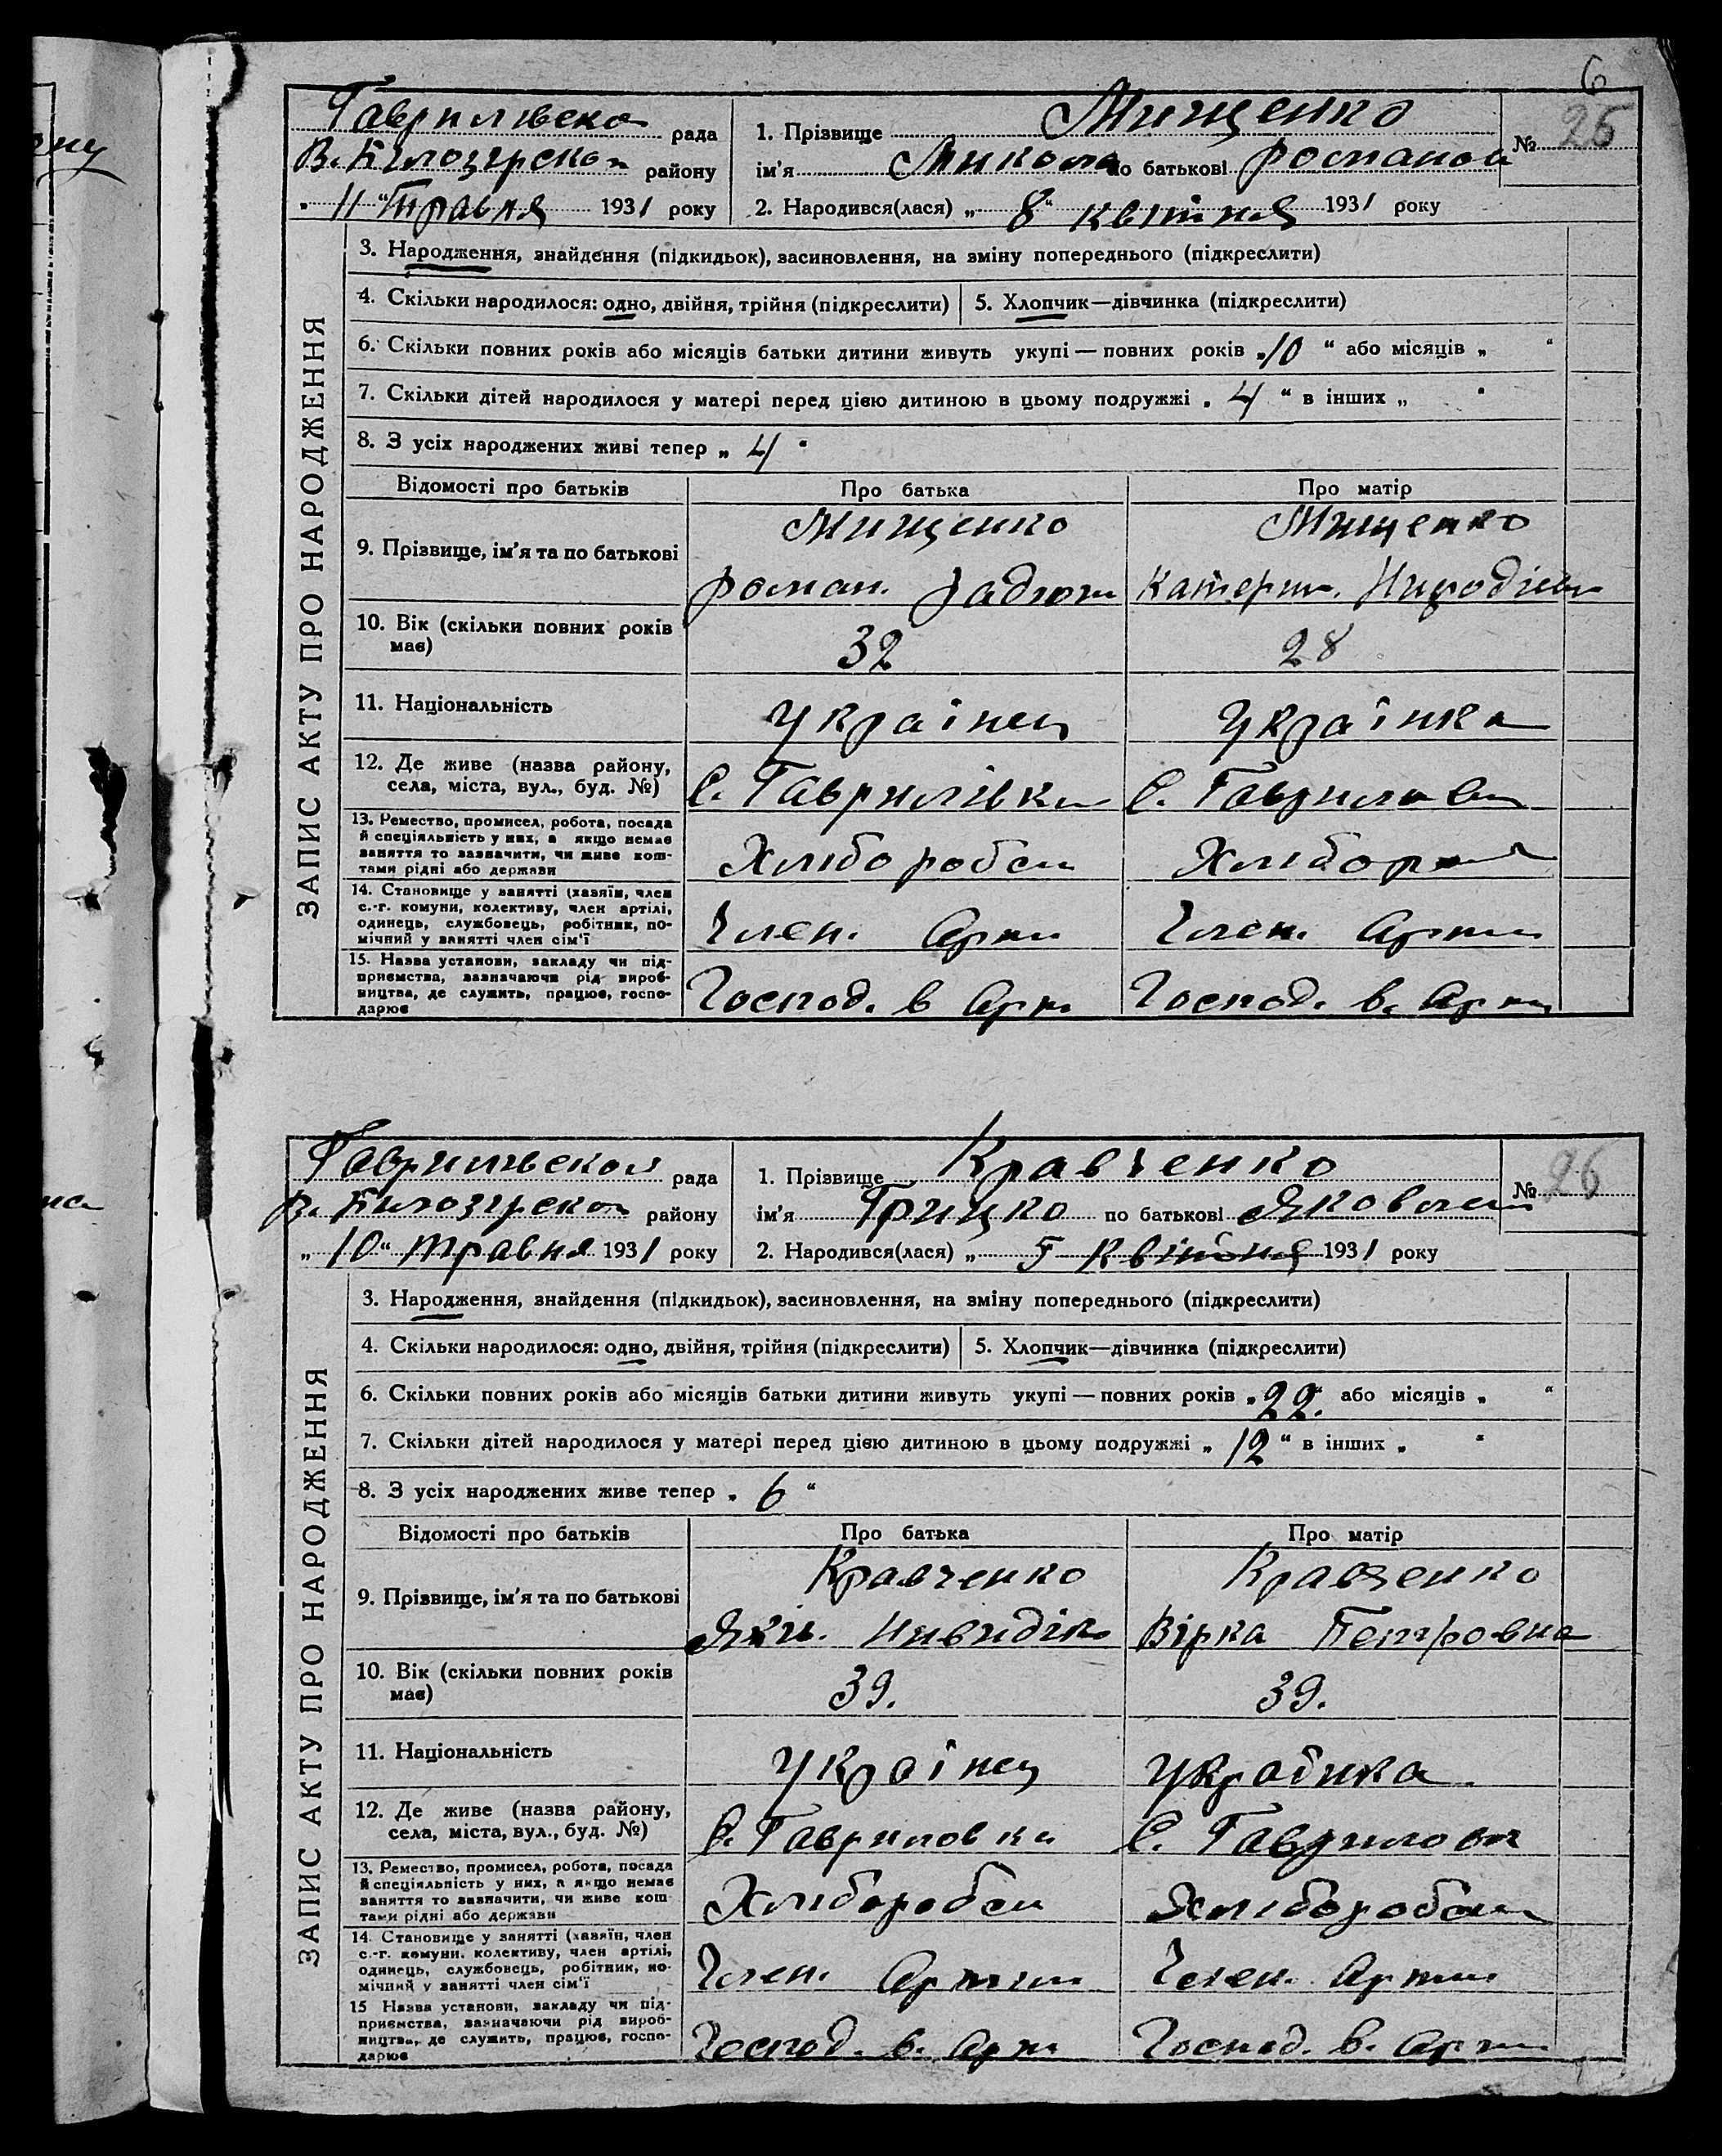 6
Гаврилівська рада
В. Білозірсько району
„ 11 “ Травня 1931 року
1. Прізвище Мищенко
ім'я Микола по батькові Роман
2. Народився(лася) „ 8 “ квітня 1931 року
№ 25
ЗАПИС АКТУ ПРО НАРОДЖЕННЯ
3. Народження, знайдення (підкидьок), засиновлення, на зміну попереднього (підкреслити)
4. Скільки народилося: одно, двійня, трійня (підкреслити)
5. Хлопчик—дівчинка (підкреслити)
6. Скільки повних років або місяців батьки дитини живуть укупі — повних років „ 10 “ або місяців „ “
7. Скільки дітей народилося у матері перед цією дитиною в цьому подружжі „ 4 “ в інших „ “
8. З усіх народжених живі тепер „ 4 “
Відомості про батьків Про батька Про матір
9. Прізвище, ім'я та по батькові
Мищенко Мищенко
Роман. Катерин.
10. Вік (скільки повних років
має)
32 28
11. Національність Українец Українка
12. Де живе (назва району,
села, міста, вул., буд. №)
С. Гаврилівка С. Гаврилів
13. Ремество, промисел, робота, посада
й спеціяльність у них, а якщо немає
заняття то зазначити, чи живе кош-
тами рідні або держави
Хлібороб Хлібор
14. Становище у занятті (хазяїн, член
с.-г. комуни, колективу, член артілі,
одинець, службовець, робітник, по-
мічний у занятті член сім'ї
Член. Арт Член. Арт
15. Назва установи, закладу чи під-
приємства, зазначаючи рід вироб-
ництва, де служить, працює, госпо-
дарює
Господ. в Арт Господ. в. Арт
Гаврилівської рада
В. Білозірсько району
„ 10 “ травня 1931 року
1. Прізвище Кравченко
ім'я Грицко по батькові Яковлев
2. Народився(лася) „ 5 квітня 1931 року
№ 26
ЗАПИС АКТУ ПРО НАРОДЖЕННЯ
3. Народження, знайдення (підкидьок), засиновлення, на зміну попереднього (підкреслити)
4. Скільки народилося: одно, двійня, трійня (підкреслити)
5. Хлопчик—дівчинка (підкреслити)
6. Скільки повних років або місяців батьки дитини живуть укупі — повних років „ 22. “ або місяців „ “
7. Скільки дітей народилося у матері перед цією дитиною в цьому подружжі „ 12 “ в інших „ “
8. З усіх народжених живе тепер „ 6 “
Відомості про батьків Про батька Про матір
9. Прізвище, ім'я та по батькові
Кравченко Кравченко
Вірка Петровна
10. Вік (скільки повних років
має)
39. 39.
11. Національність Українец Українка
12. Де живе (назва району,
села, міста, вул., буд. №)
С. Гавриловка С. Гаврилов
13. Ремество, промисел, робота, посада
й спеціяльність у них, а якщо немає
заняття то зазначити, чи живе кош-
тами рідні або держави
Хлібороб Хлібороб
14. Становище у занятті (хазяїн, член
с.-г. комуни, колективу, член артілі,
одинець, службовець, робітник, по-
мічний у занятті член сім'ї
Член. Артили Член. Арт
15 Назва установи, закладу чи під-
приємства, зазначаючи рід вироб-
ництва, де служить, працює, госпо-
дарює
Господ. в. Арт Господ. в. Арт